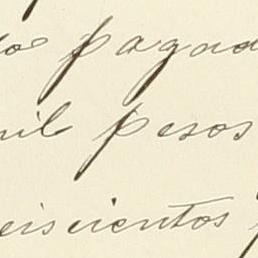 pagad
mil pesos
seiscientos